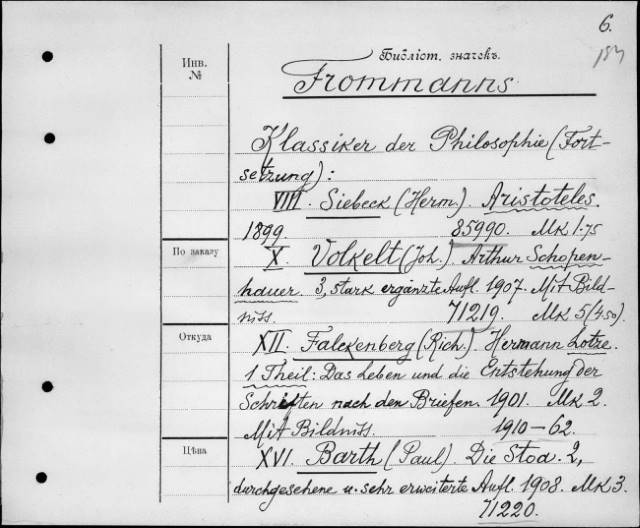 6.
184
Инв.
№
Библіот. значекъ.
Frommanns
Klassiker der Philosophie (Fort-
setzung):
VIII. Siebeck (Herm.). Aristoteles.
1899. 85990. Mk 1.75
По заказу
X. Volkelt (Joh.). Arthur Schopen-
hauer. 3, stark ergänzte Aufl. 1907. Mit Bild-
niss. 71219. Mk 5 (4.50).
Откуда
XII. Falckenberg (Rich.). Hermann Lotze.
1 Theil: Das Leben und die Entstehung der
Schriften nach den Briefen. 1901. Mk 2.
Mit Bildniss. 1910-62.
Цѣна
XVI. Barth (Paul). Die Stoa. 2,
durchgesehene u. sehr erweiterte Aufl. 1908. Mk 3.
71220.